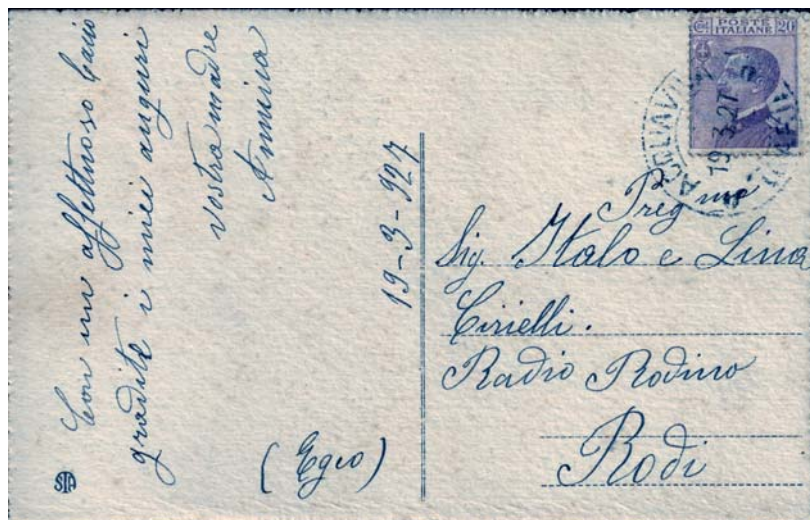 Con un affettuoso bacio
gradite i miei auguri
vostra madre
Annina
19-3-927
(Egeo)
POSTE
ITALIANE
20
19.3.27
Preg mo
Sig. Italo e Lina
Cirielli.
Radio Rodino
Rodi
STA